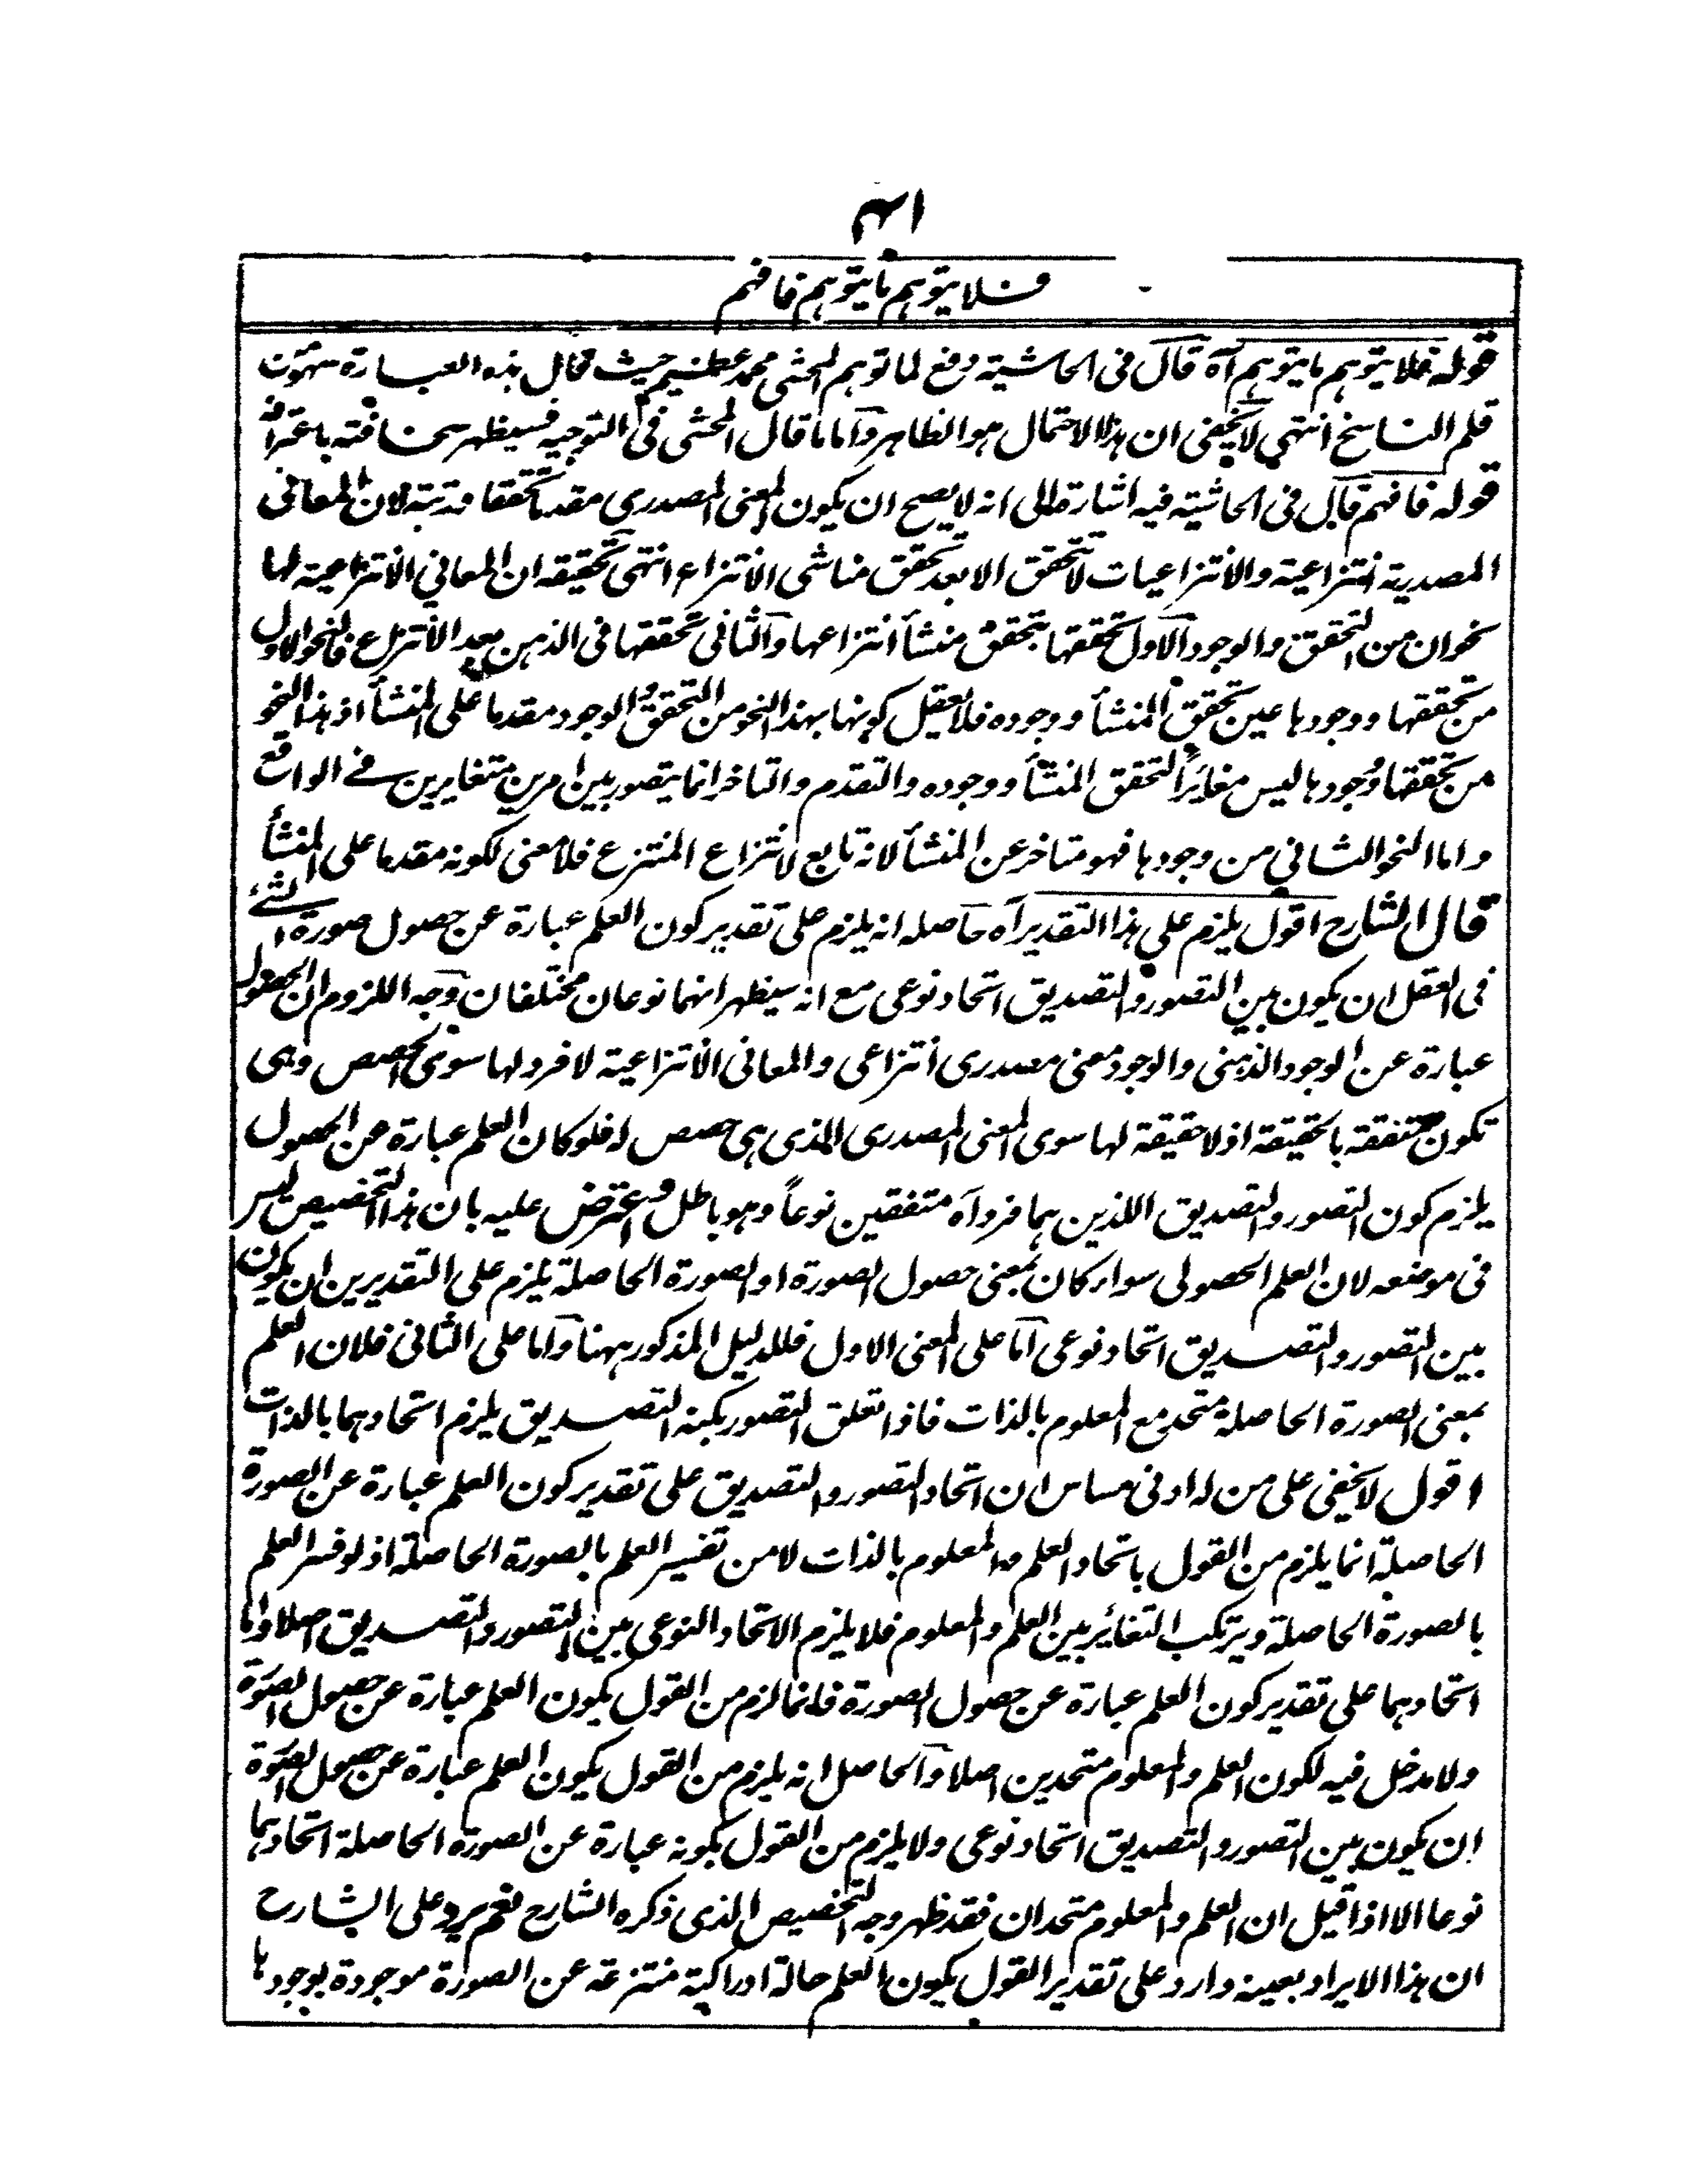 فلا يتوهم ما يتوهم فافهم
قوله فلا يتوهم ما يتوهم آه قال فى الحاشية دفع لما توهم المحشى محمد عظيم حيث قال هذه العبارة سهو من
قلم الناسخ انتهى لا يخفى ان هذا الاحتمال هو الظاهر واما ما قال المحشى فى التوجيه فسيظهر سخافته باعترافه
قوله فافهم قال فى الحاشية فيه اشارة الى انه لا يصح ان يكون المعنى المصدرى مقدما تحققا ورتبة لان المعانى
المصدرية انتزاعية والانتزاعيات لا تتحقق الا بعد تحقق مناشى الانتزاع انتهى تحقيقه ان المعاني الانتزاعية لها
نحوان من التحقق والوجود الاول تحققها بتحقق منشأ انتزاعها والثانى تحققها فى الذهن بعد الانتزاع فالنحو الاول
من تحققها ووجودها عين تحقق المنشأ ووجوده فلا يعقل كونها بهذا النحو من التحقق والوجود مقدما على المنشأ اذ هذا النحو
من تحققها ووجودها ليس مغايراً لتحقق المنشأ ووجوده والتقدم والتاخر انما يتصور بين امرين متغايرين فى الواقع
واما النحو الثاني من وجودها فهو متاخر عن المنشأ لانه تابع لانتزاع المنتزع فلا معنى لكونه مقدما على المنشأ
قال الشارح اقول يلزم على هذا التقدير آه حاصله انه يلزم على تقدير كون العلم عبارة عن حصول صورة الشئ
فى العقل ان يكون بين التصور والتصديق اتحاد نوعى مع انه سيظهر انهما نوعان مختلفان وجه اللزوم ان الحصول
عبارة عن الوجود الذهنى والوجود معنى مصدرى انتزاعى والمعانى الانتزاعية لا فرد لها سوى الحصص وهى
تكون متفقة بالحقيقة اذ لا حقيقة لها سوى المعنى المصدرى الذى هى حصص له فلو كان العلم عبارة عن الحصول
يلزم كون التصور والتصديق اللذين هما فرداه متفقين نوعاً وهو باطل واعترض عليه بان هذا التخصيص ليس
فى موضعه لان العلم الحصولى سواء كان بمعنى حصول الصورة او الصورة الحاصلة يلزم على التقديرين ان يكون
بين التصور والتصديق اتحاد نوعى اما على المعنى الاول فللدليل المذكور ههنا واما على الثانى فلان العلم
بمعنى الصورة الحاصلة متحد مع المعلوم بالذات فاذا تعلق التصور بكنه التصديق يلزم اتحادهما بالذات
اقول لا يخفى على من له ادنى مساس ان اتحاد التصور والتصديق على تقدير كون العلم عبارة عن الصورة
الحاصلة انما يلزم من القول باتحاد العلم والمعلوم بالذات لا من تفسير العلم بالصورة الحاصلة اذ لو فسر العلم
بالصورة الحاصلة ويرتكب التغائر بين العلم والمعلوم فلا يلزم الاتحاد النوعى بين التصور والتصديق اصلا واما
اتحادهما على تقدير كون العلم عبارة عن حصول الصورة فانما لزم من القول بكون العلم عبارة عن حصول الصورة
ولا مدخل فيه لكون العلم والمعلوم متحدين اصلا والحاصل انه يلزم من القول بكون العلم عبارة عن حصول الصورة
ان يكون بين التصور والتصديق اتحاد نوعى ولا يلزم من القول بكونه عبارة عن الصورة الحاصلة اتحادهما
نوعا الا اذا قيل ان العلم والمعلوم متحدان فقد ظهر وجه التخصيص الذى ذكره الشارح نعم يرد على الشارح
ان هذا الايراد بعينه وارد على تقدير القول بكون العلم حالة ادراكية منتزعة عن الصورة موجودة بوجودها